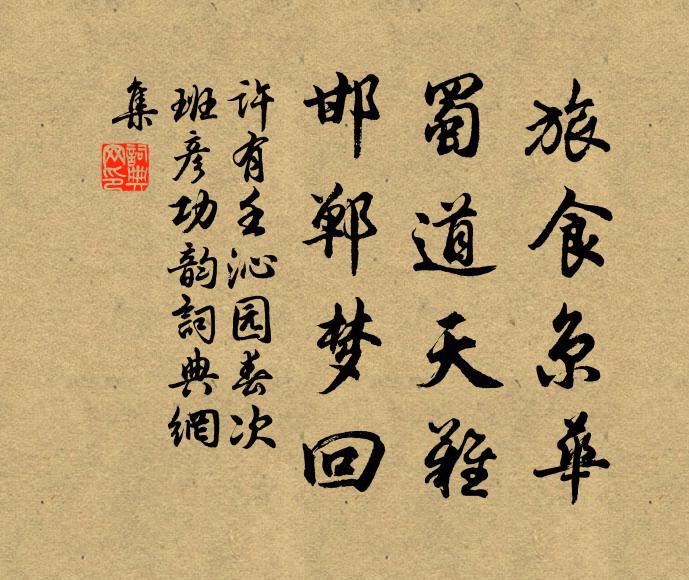 旅食京華
蜀道天難
邯鄲梦回
許有壬沁园春次
班彦功韵詞典網
集
詞典網印